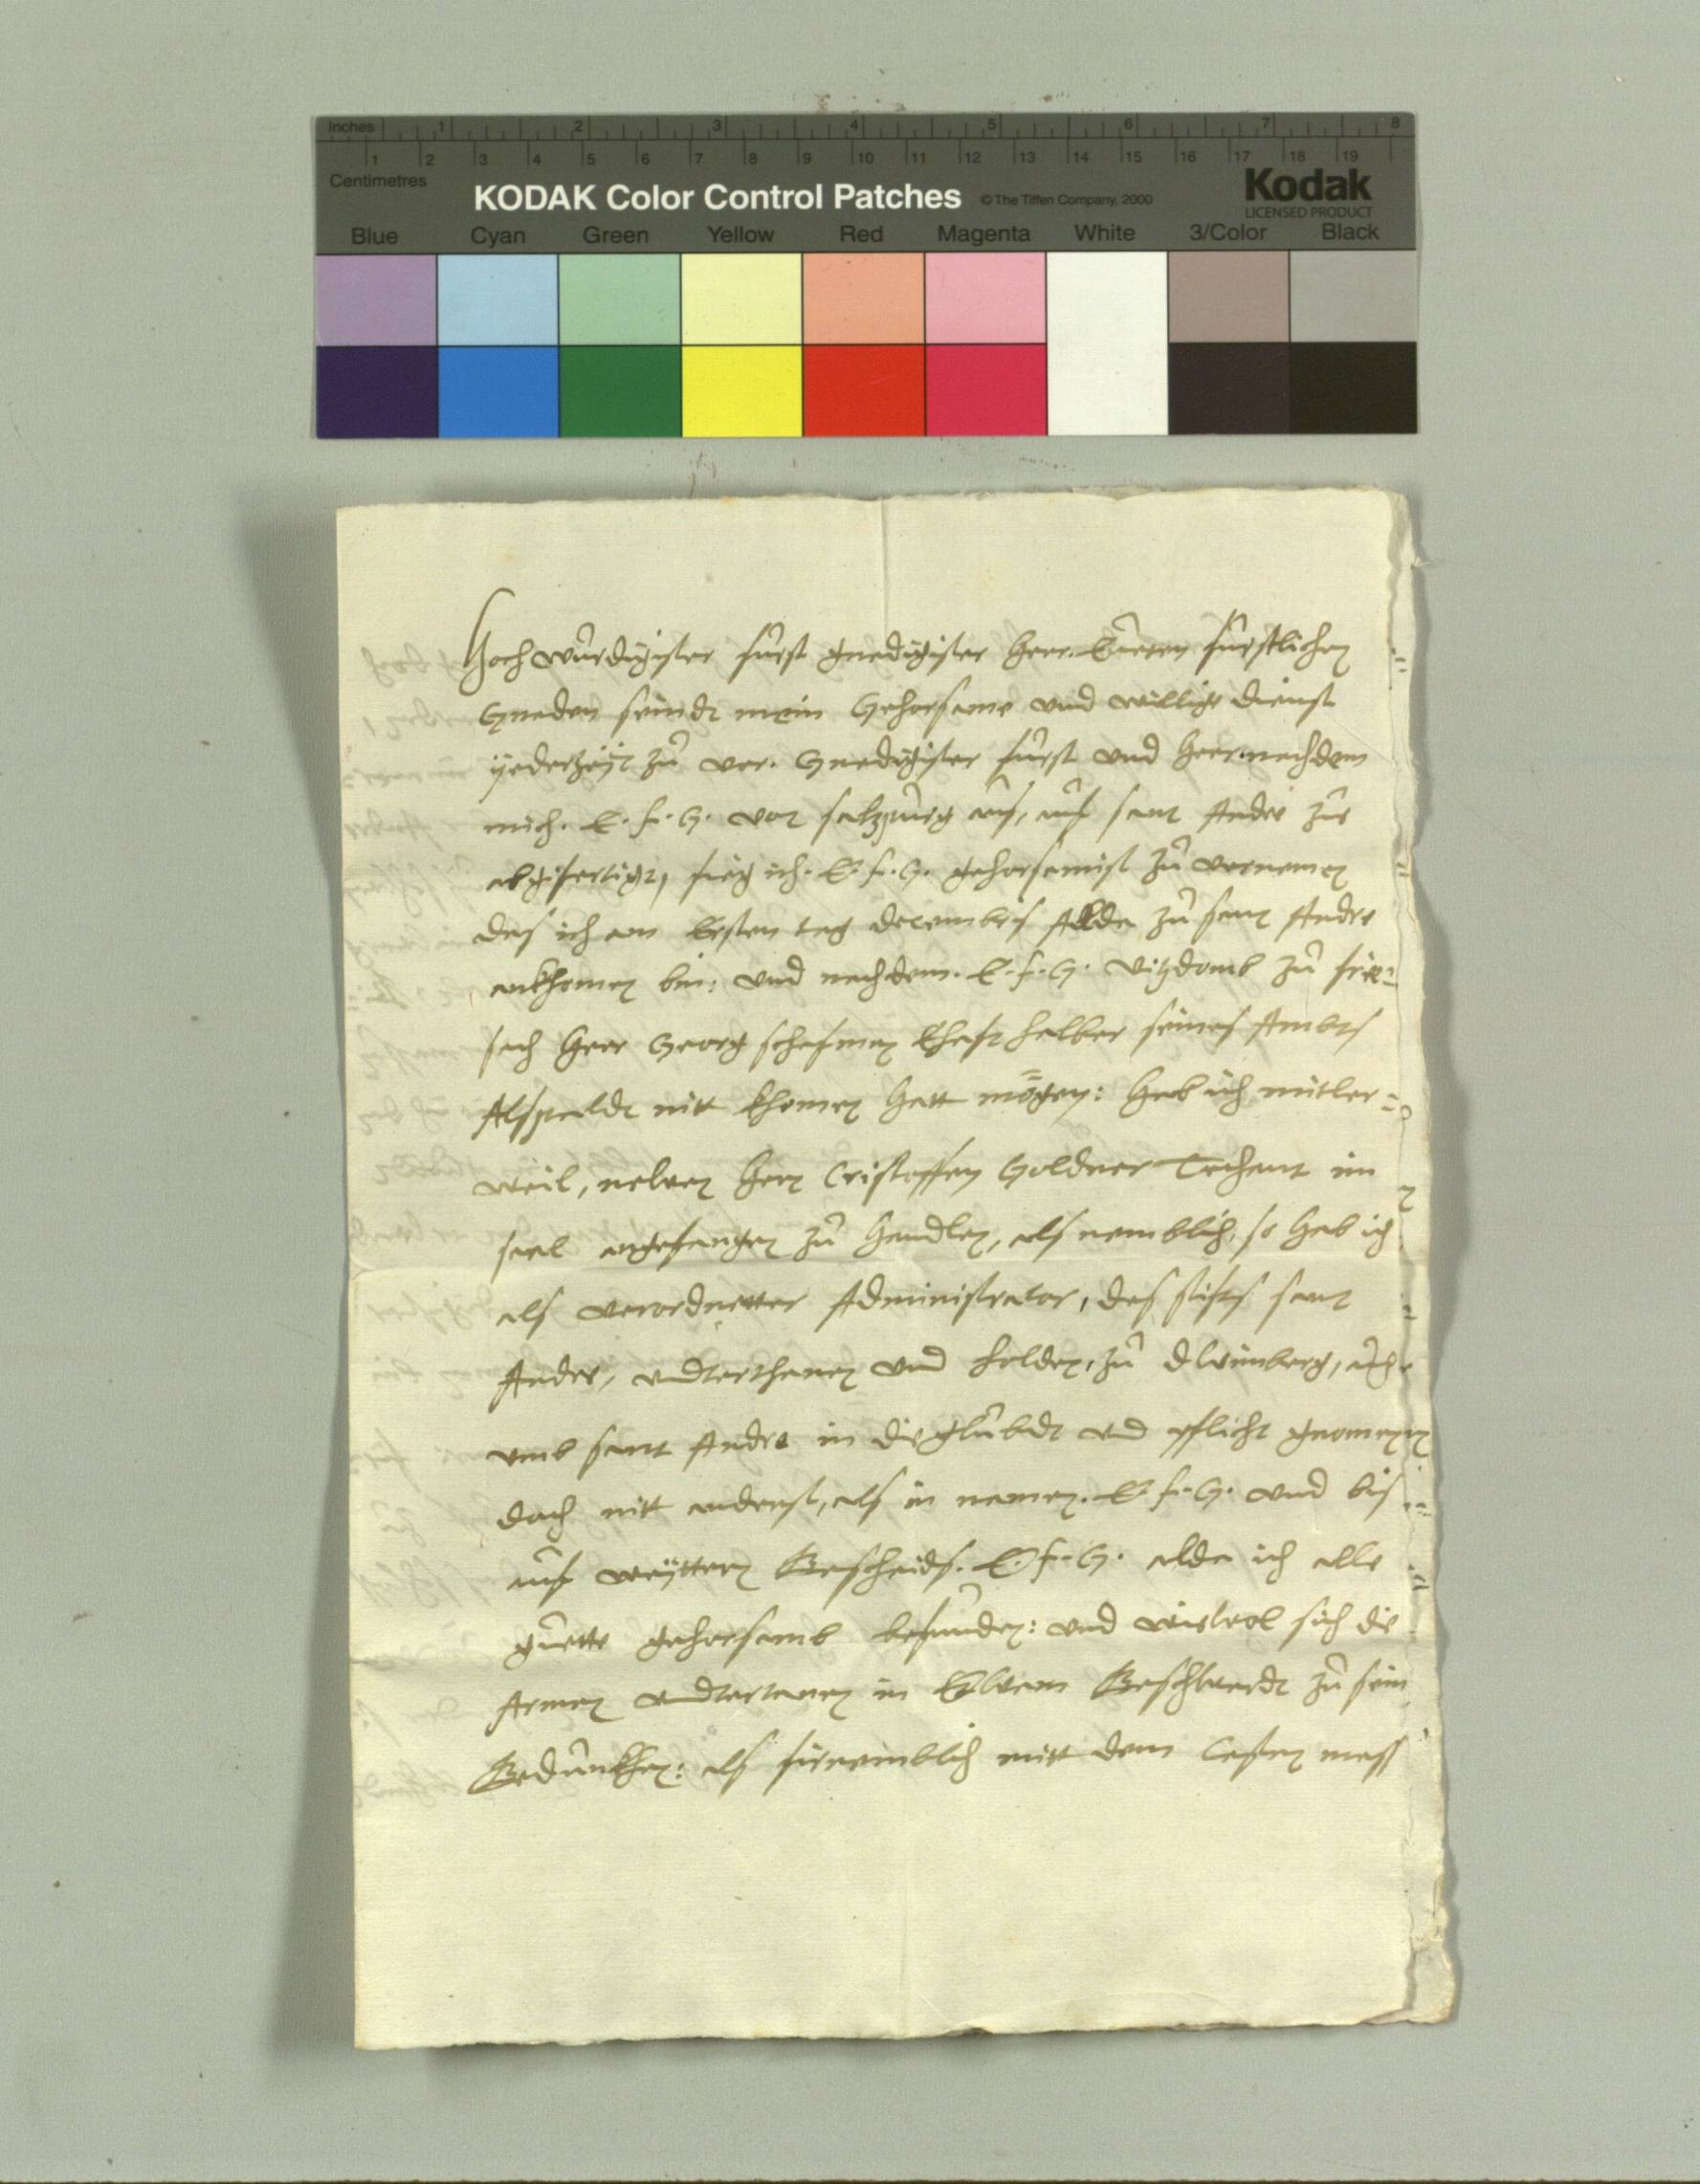 Inches 1 2 3 4 5 6 7 8
1 2 3 4 5 6 7 8 9 10 11 12 13 14 15 16 17 18 19
Centimetres
KODAK Color Control Patches © The Tiffen Company, 2000 Kodak
LICENSED PRODUCT
Blue Cyan Green Yellow Red Magenta White 3/Color Black
Hochwürdigister fürst gnedigister herr. Eürren fürstlichen
Gnaden seindt mein Gehorsame und willige dienst
yederzeÿt zů vor. Gnedigister fürst und herr. nachdem
mich. E. f. G. von salzpurg aus, auf sant Andre zue
abgefertigt, fieg ich. E. f. G. gehorsamist zů vernemen
das ich am Ersten tag decembris Allda zů sant Andre
ankhomen bin: und nachdem. E. f. G. vitzdomb zů frie=
sach herr Georg schafman Ehaft halber seines Ambts
Alspaldt nitt khomen hatt mögen: hab ich mitler=
weil, neben herrn Cristoffen Goldner Techant im
saal angefangen zů handlen, als nemblich, so hab ich
als verordnetter Administrator, des stifts sant
Andre, undterthanen und holden, zů
umb sant Andre in die glübdt und pflicht gnomen
doch nitt anderst, als in namen. E. f. G. und bis
auf weÿttern Beschaids. E. f. G. alda ich alle
guette gehorsamb befunden: und wiewol sich die
Armen undtertanen in Etwam Beschwerdt zů sein
Gedünkhen: als fürnemblich mitt dem Casten mass